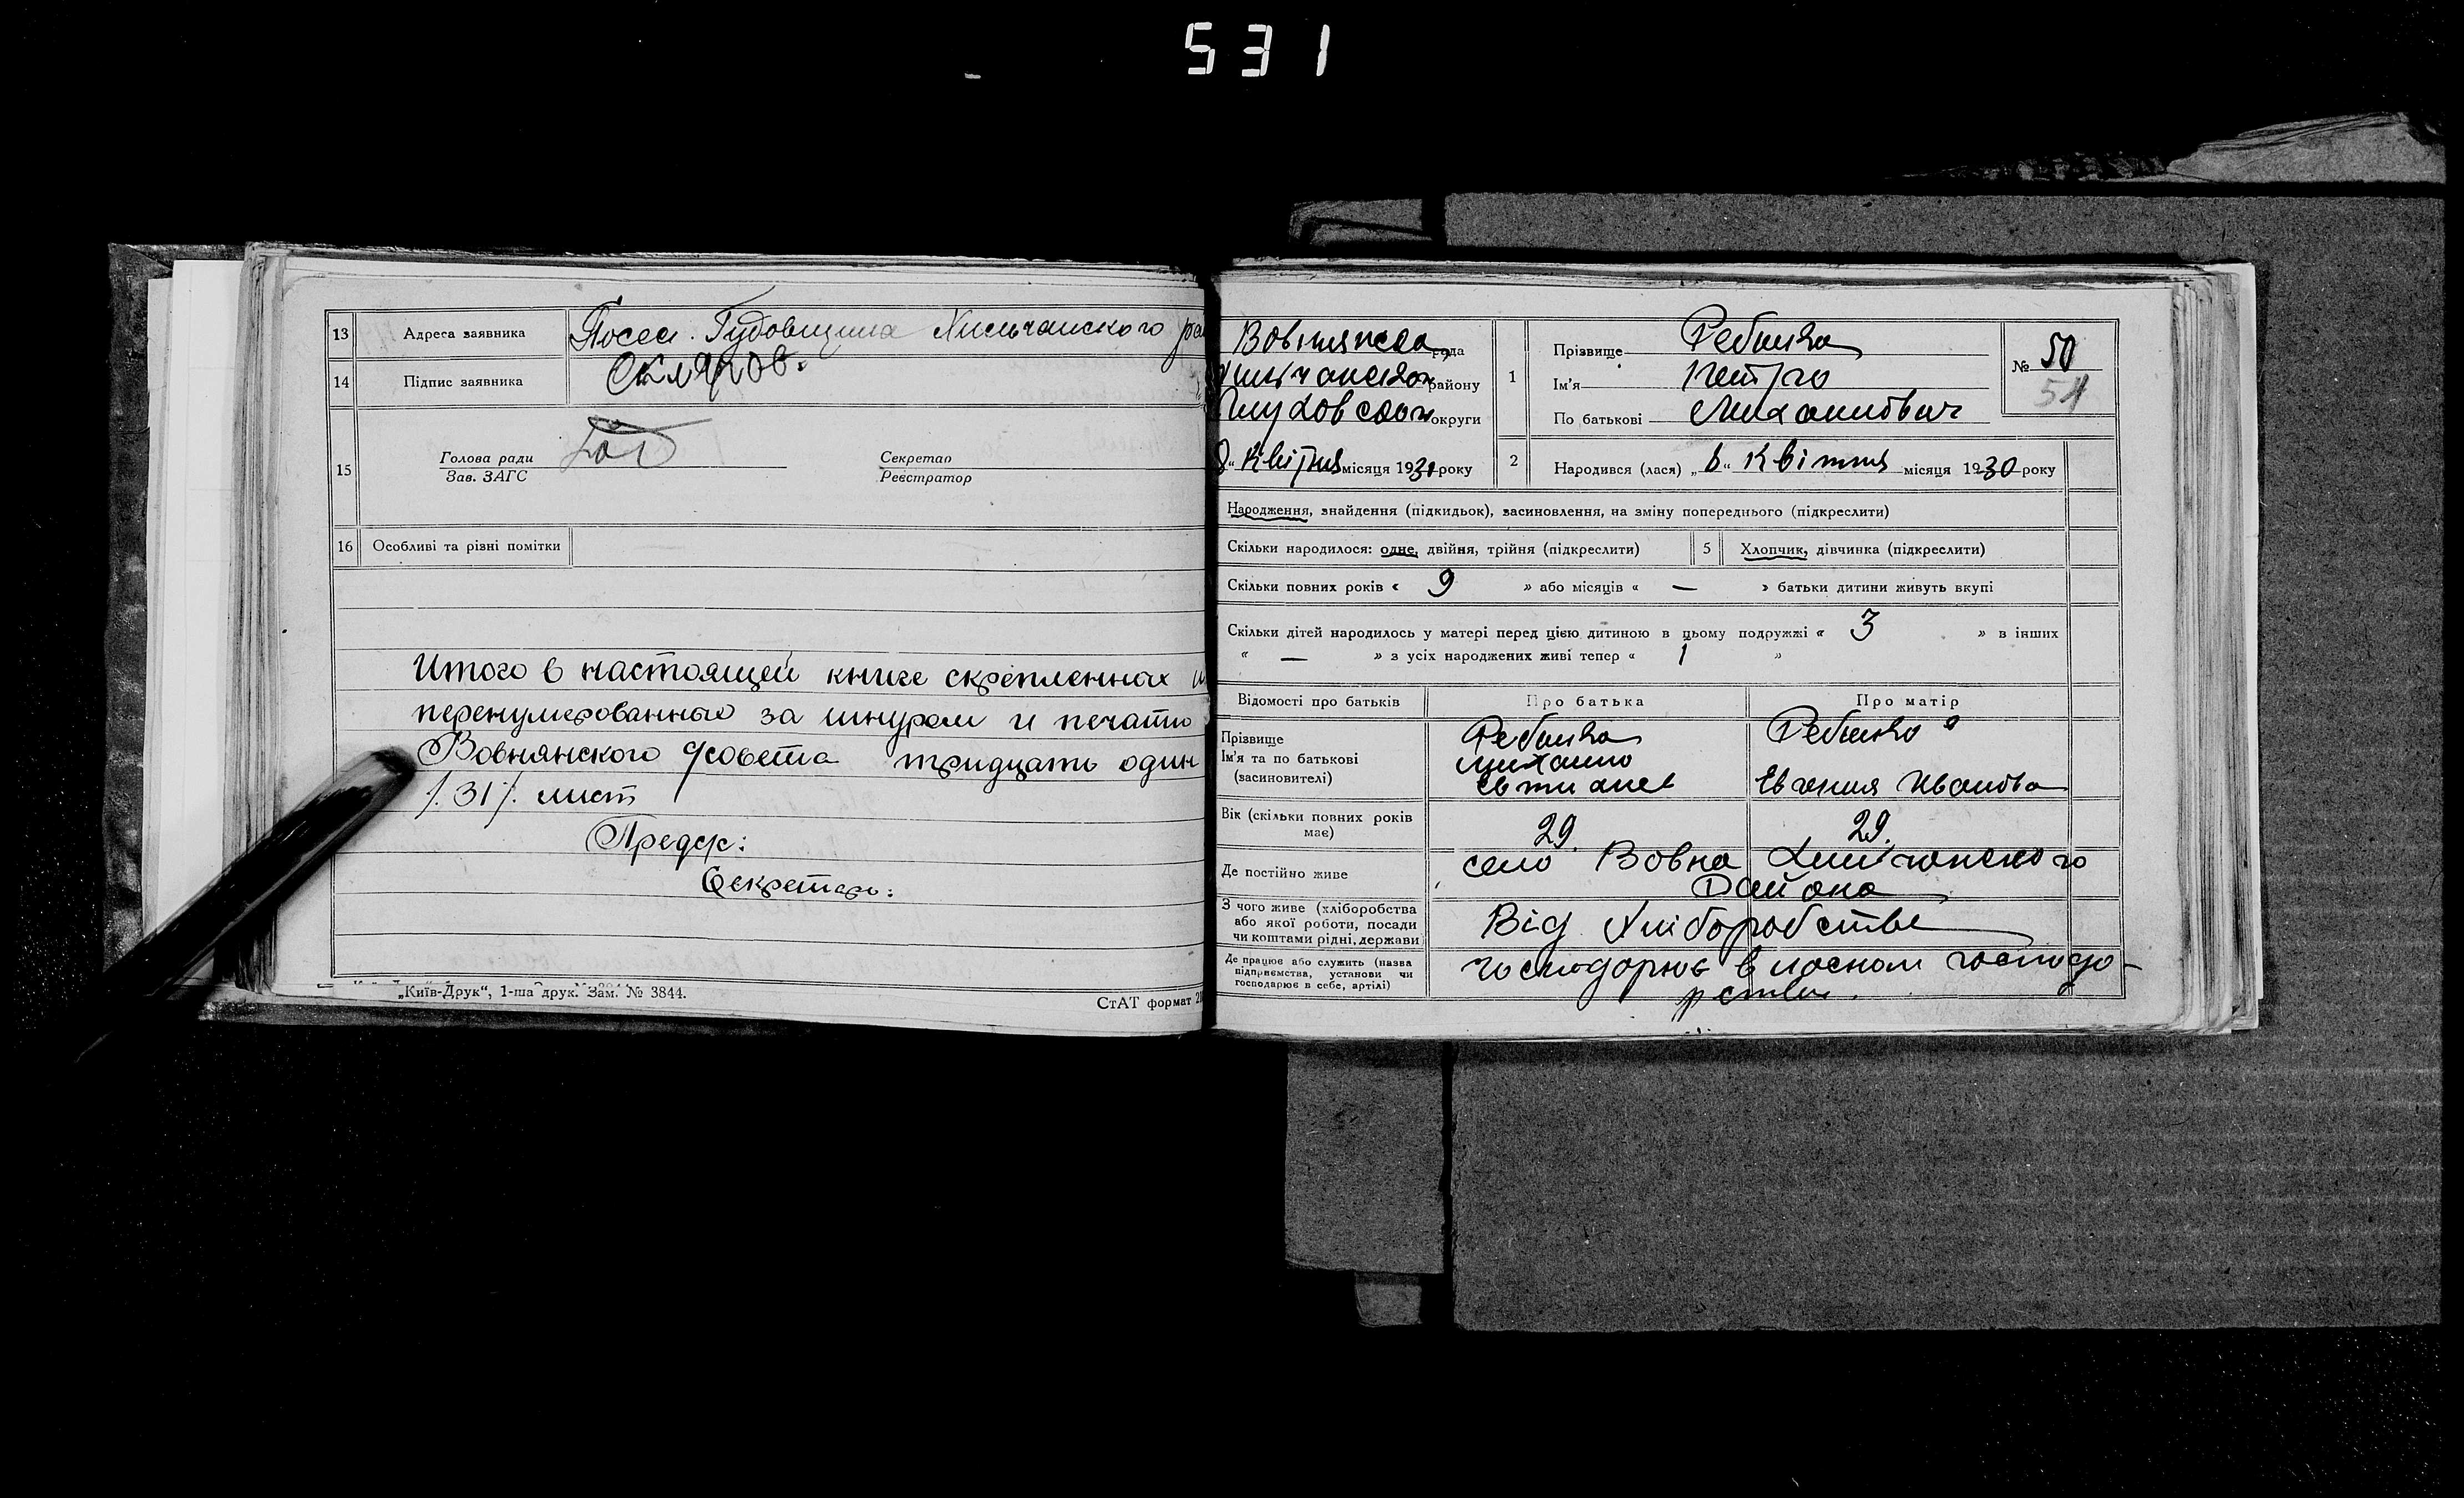 531
13 Адреса заявника Посел. Гудовщина Хильчанского ра
14 Підпис заявника Скляров.
15 Голова ради Секретар
Зав. ЗАГС Реєстратор
16 Особливі та різні помітки
Итого в настоящей книге скрепленных и
перенумерованных за шнуром и печатью
Вовнянского с/совета тридцать один
/.31/. лист
Предс:
Секретарь:
„Київ-Друк“, 1-ша друк. Зам. № 3844.
СтАТ формат
Вовнянска рада
району
округи
8 „ Квітня місяця 1930 року
1 Прізвище
Ім'я Петро
По батькові Михайлович
№ 50
51
2 Народився (лася) „ 8 “ Квітня місяця 1930 року
Народження, знайдення (підкидьок), засиновлення, на зміну попереднього (підкреслити)
Скільки народилося: одне, двійня, трійня (підкреслити) 5 Хлопчик, дівчинка (підкреслити)
Скільки повних років « 9 » або місяців « — » батьки дитини живуть вкупі
Скільки дітей народилось у матері перед цією дитиною в цьому подружжі « 3 » в інших
« — » з усіх народжених живі тепер « 1 »
Відомості про батьків Про батька Про матір
Прізвище
Ім'я та по батькові Михайло
(засиновителі) Евгения Иванова
Вік (скільки повних років має) 29. 29.
Де постійно живе село Вовна Хильчанского
Району
З чого живе (хліборобства
або якої роботи, посади
чи коштами рідні, держави Від Хліборобства
Де працює або служить (назва
підприємства, установи чи
господарює в себе, артілі) господарює в власном господа-
рстви.